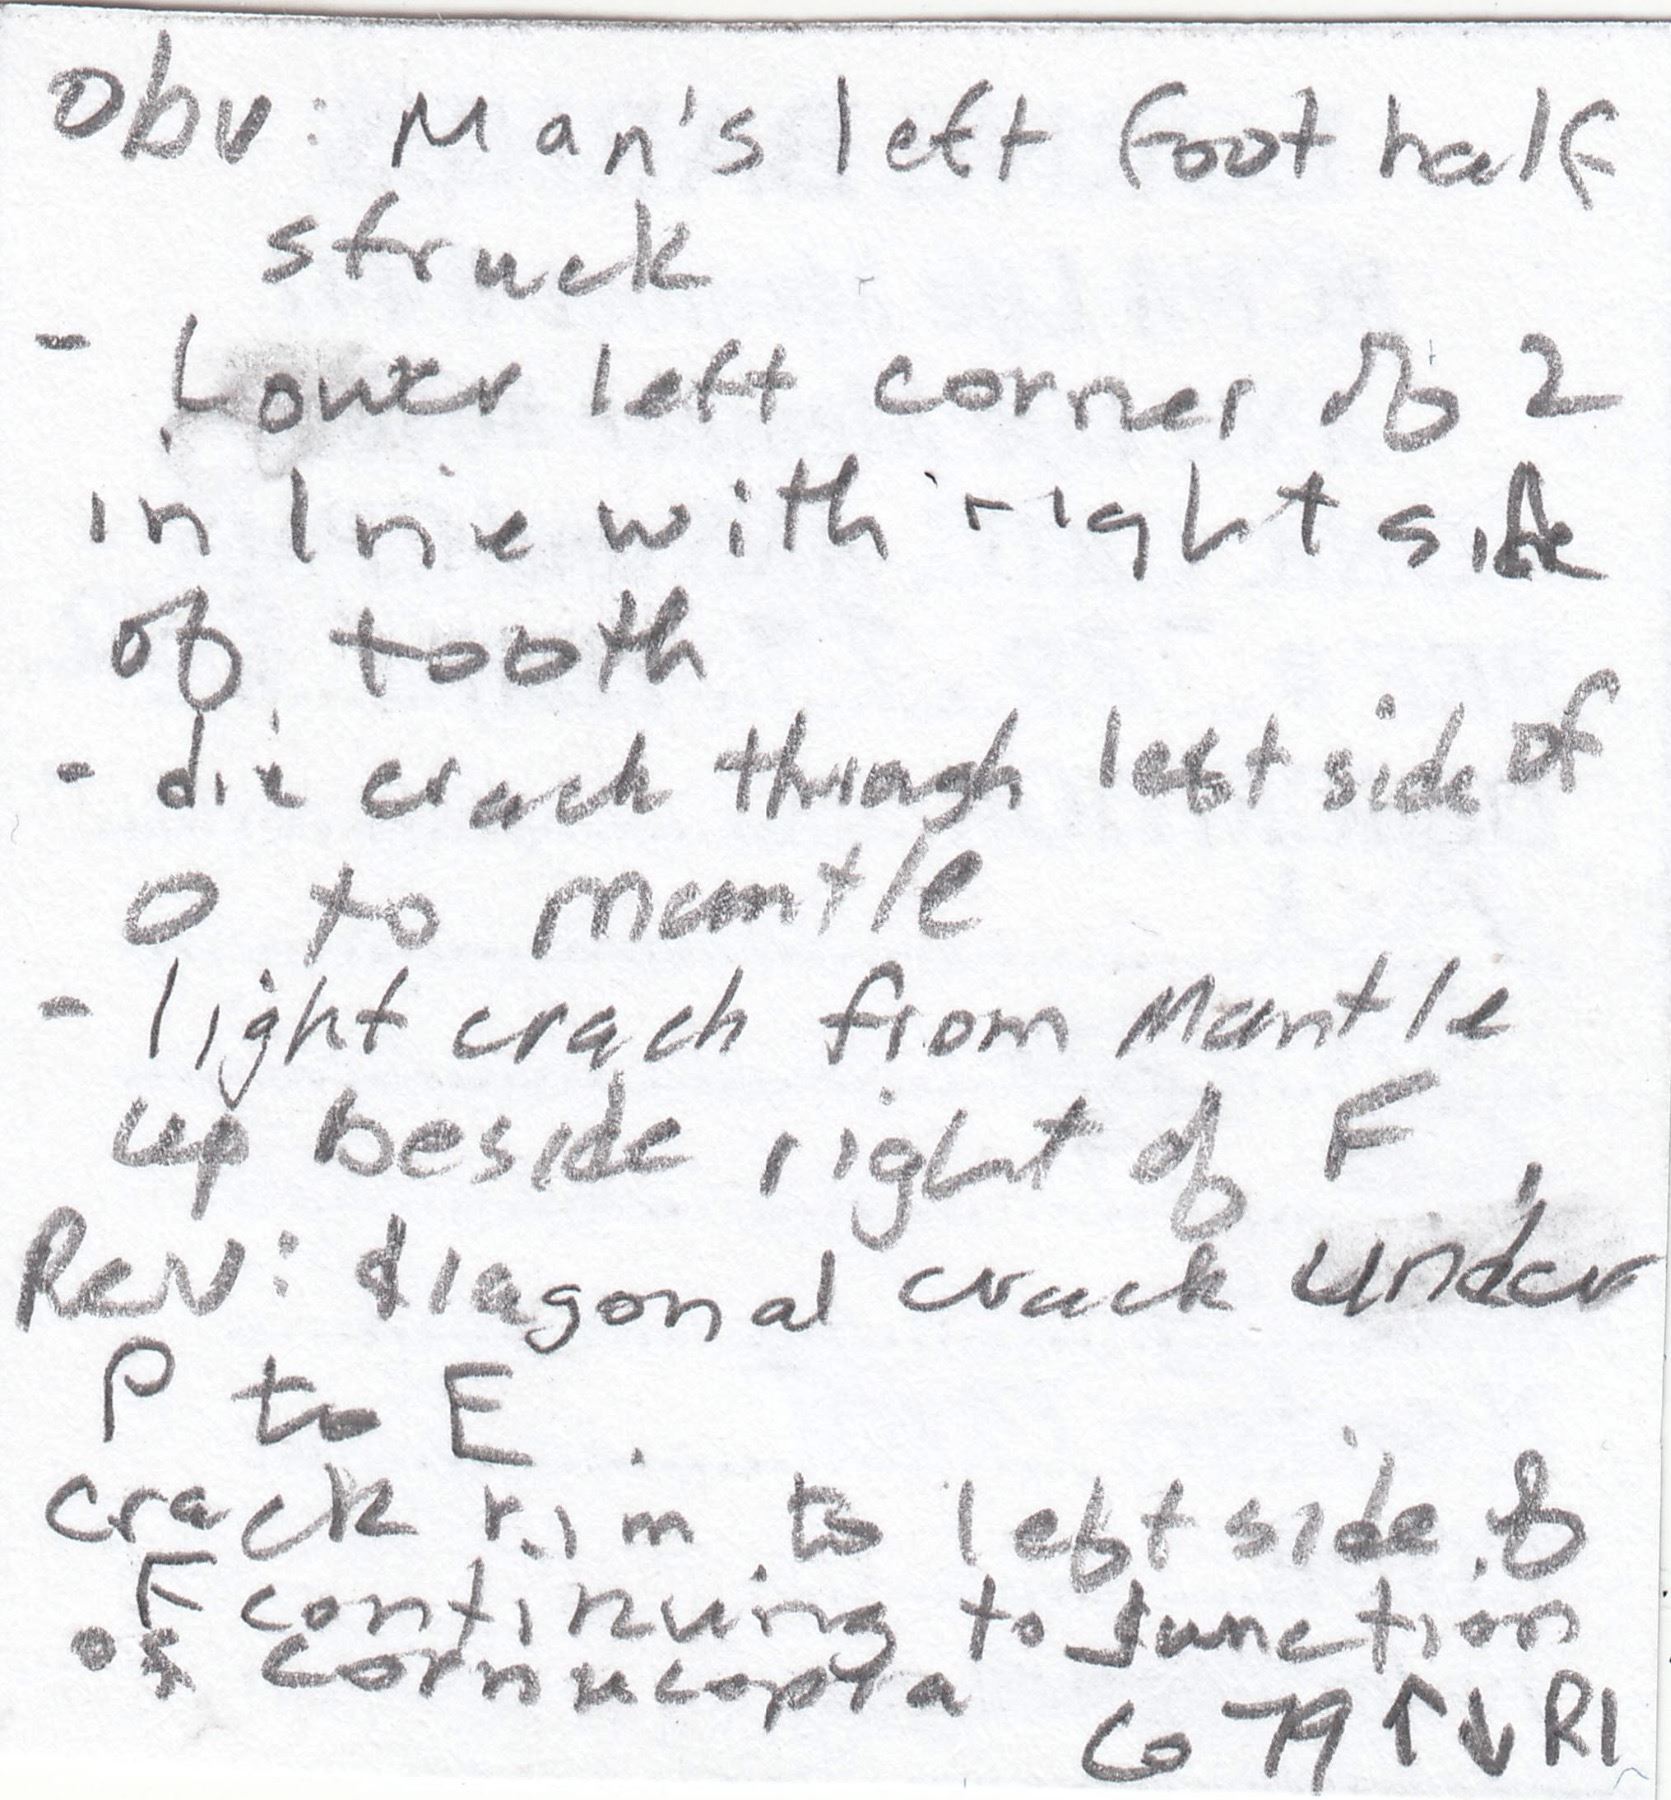 Obv: Man's left foot half
struck
- Lower left corner of 2
in line with right side
of tooth
- die crack through left side of
O to mantle
- light crack from mantle
up beside right of F
Rev: diagonal crack under
P to E
crack rim to left side of
F continuing to junction
of cornucopia
Co 79 ↑↓ R1